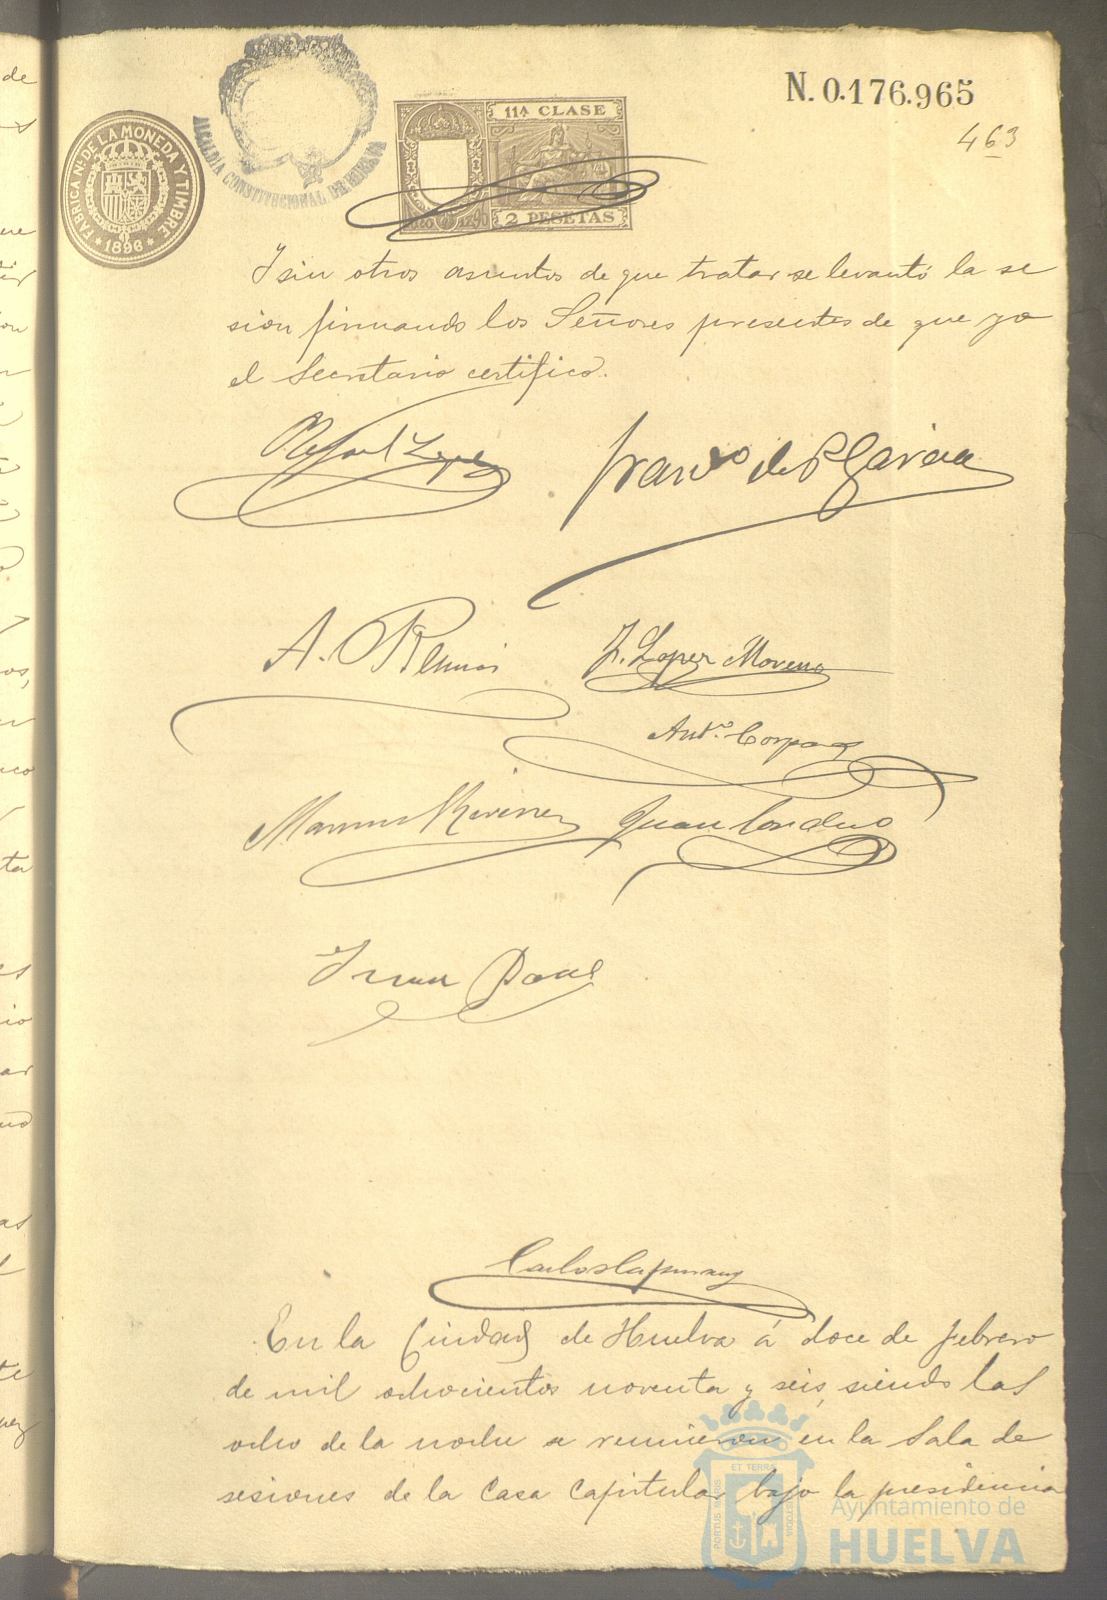 N. 0.176.965
463
FABRICA NL. DE LA MONEDA Y TIMBRE
* 1896 *
ALCALDIA CONSTITUCIONAL DE HUELVA
11ª CLASE
2 PESETAS
Y sin otros asuntos de que tratar se levantó la se
sion firmando los Señores presentes de que yo
el Secretario certifico.
Rafael Lopez
Franco de P Garcia
A.
J. Lopez Moreno
Anto.
Juan
Juan
Carlos
En la Ciudad de Huelva á doce de Febrero
de mil ochocientos noventa y seis siendo las
ocho de la noche se reunieron en la Sala de
sesiones de la Casa Capitular bajo la presidencia
PORTUS MARIS ET TERRAE CUSTODIA
Ayuntamiento de
HUELVA